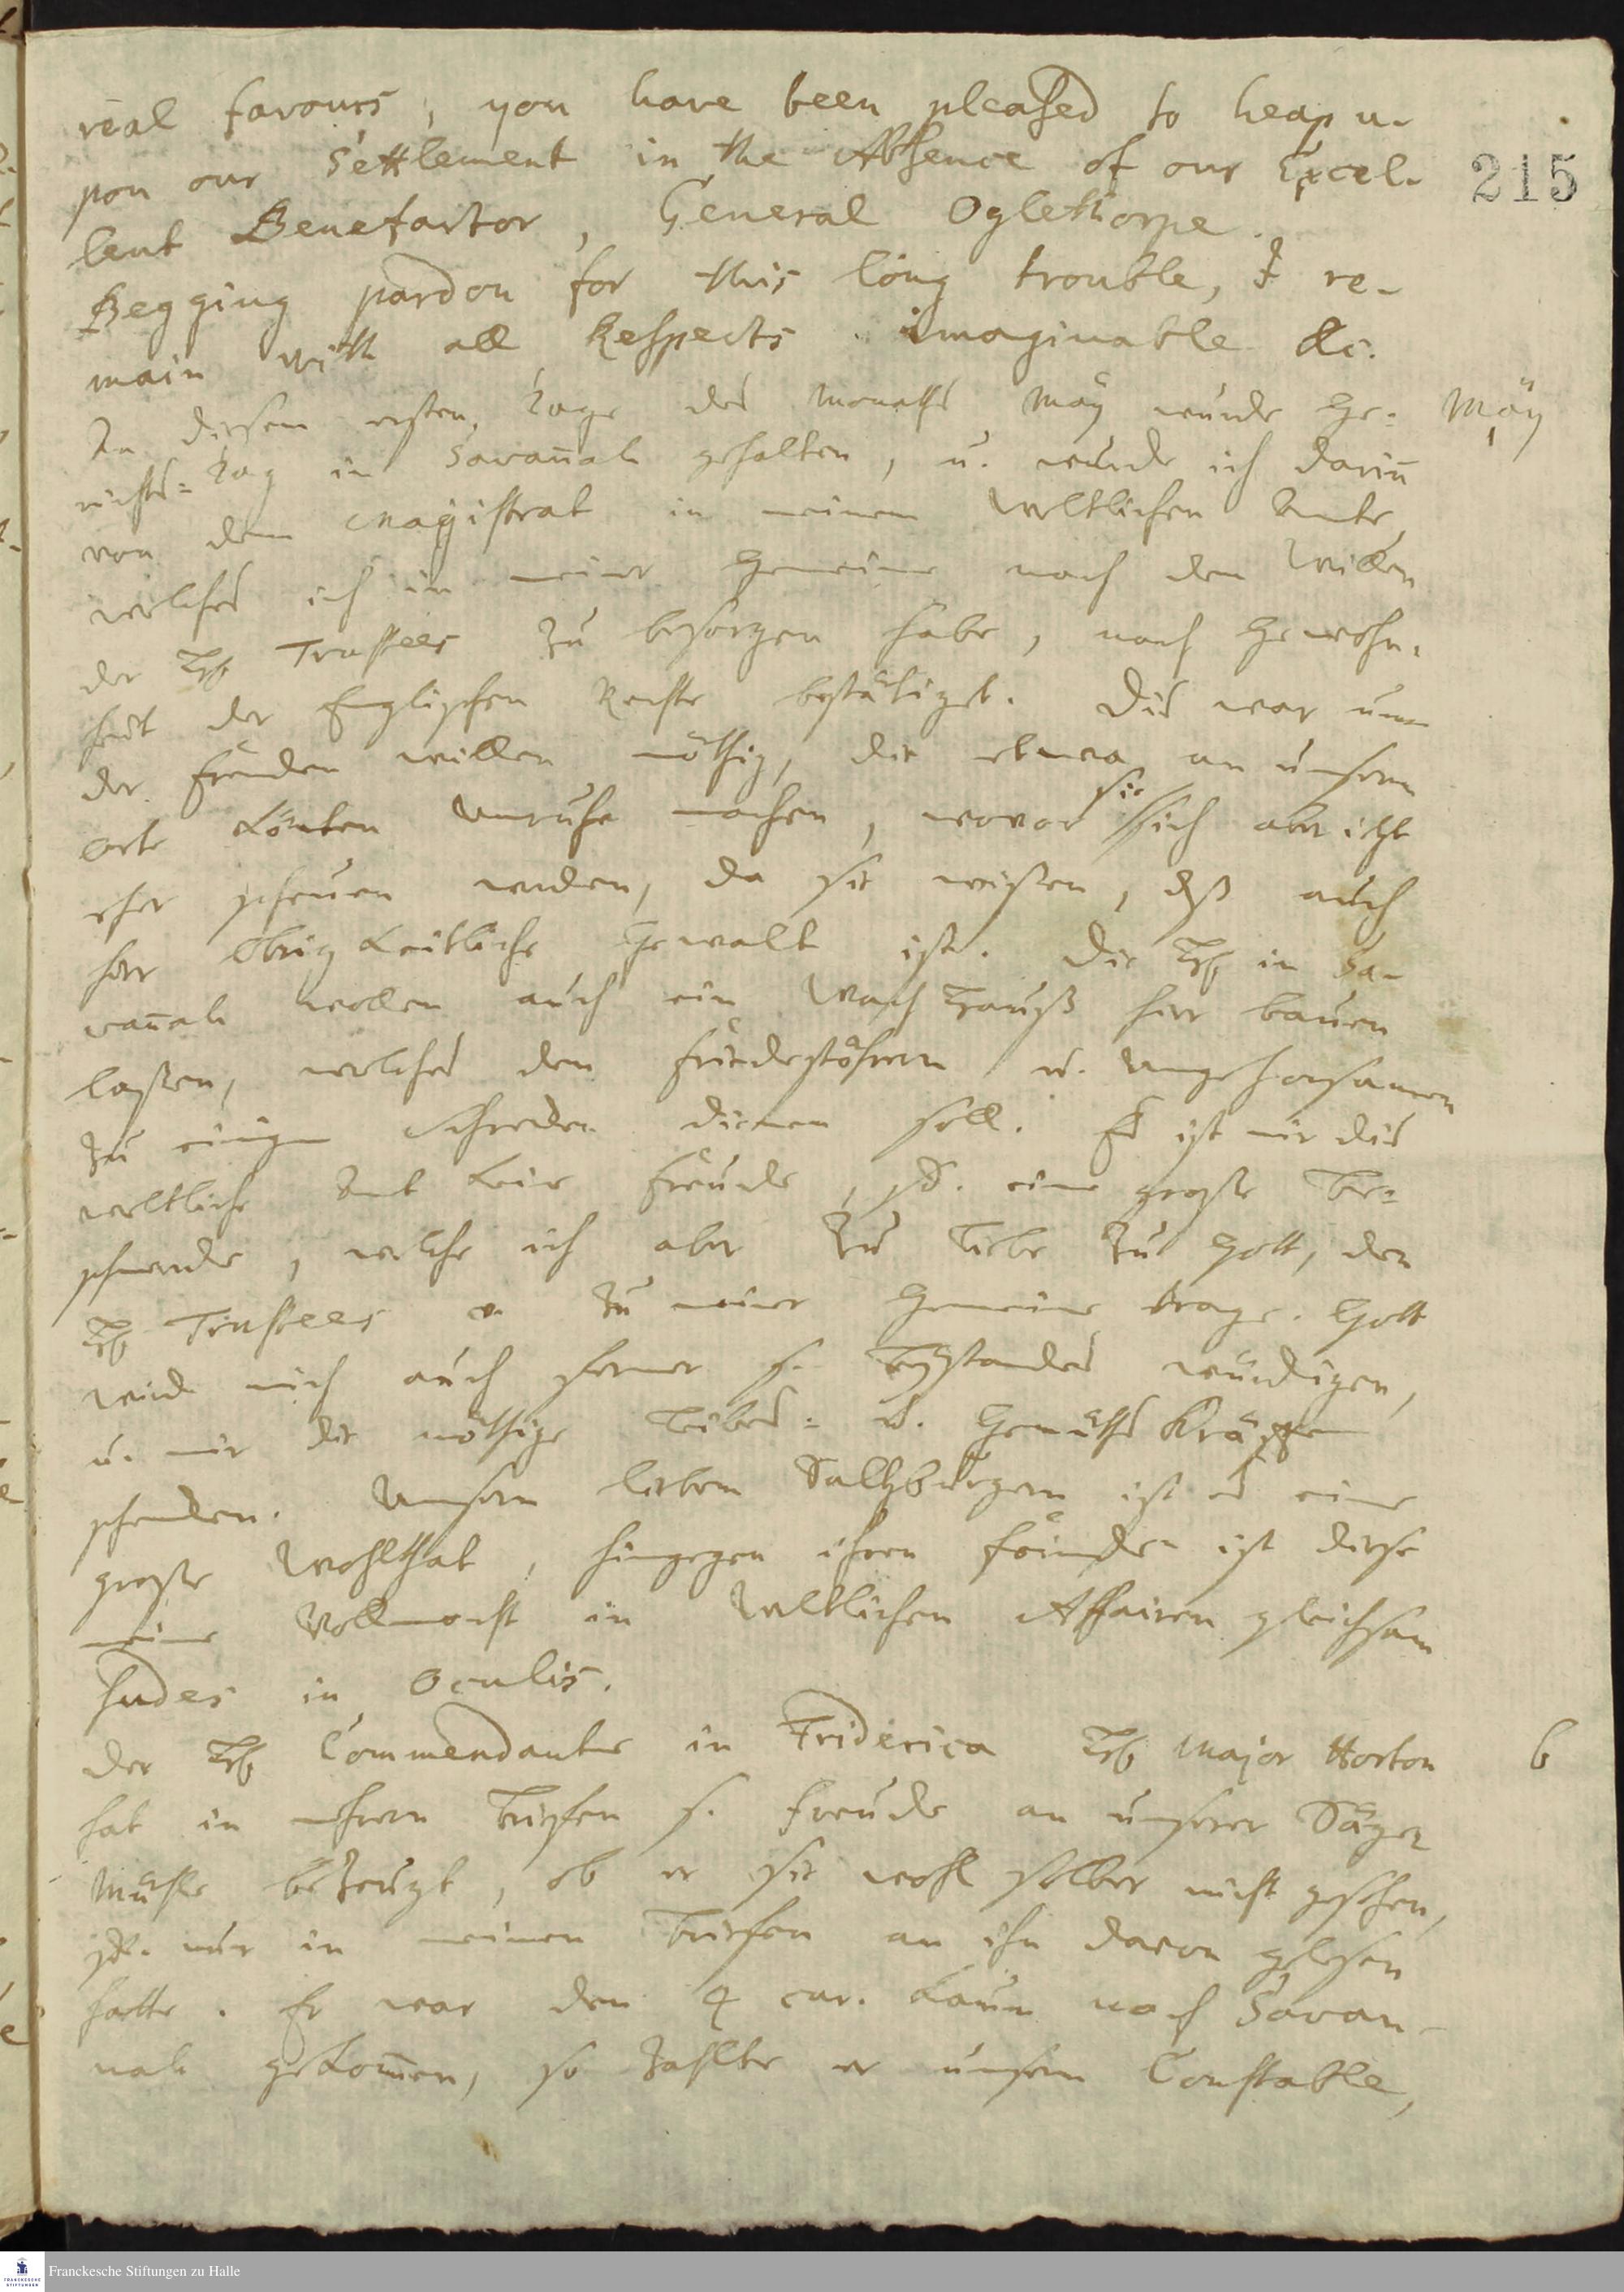 real favours, you have been pleased to heap u-
pon our Settlement in the Absence of our Excel-
lent Benefactor, General Oglethorpe.
Begging pardon for this long trouble, I re-
main with all Respects imaginable &c.
215
An diesem ersten Tage des Monaths Maÿ wurde Ge-
richts-Tag in Savan̄ah gehalten, u. wurde ich darin̄
von dem Magistrat in meinem weltlichen Amte,
welches ich in meiner Gemeine nach dem Willen
der Hh Trustees zu besorgen habe, nach Gewohn-
heit der Englischen Rechte bestätiget. Dis war um
der Fremden willen nöthig, die etwa an unserm
Orte könten Unruhe machen, wovor sie sich aber itzt
eher scheuen werden, da sie wissen, dß auch
hier Obrigkeitliche Gewalt ist. Die Hh in Sa-
van̄ah wollen auch ein Wach Hauß hier bauen
lassen, welches den Friedestöhrern u. Ungehorsamen
zu einigem Schrecken dienen soll. Es ist mir dis
weltliche Amt keine Freude, sd. eine große Be-
schwerde, welche ich aber zu Liebe zu Gott, den
Hh Trustees u. zu meiner Gemeine trage. Gott
wird mich auch ferner s. Beÿstandes würdigen,
u. mir die nöthige Leibes- u. Gemüths Kräfte
schencken. Unsern lieben Saltzburgern ist es eine
große Wohlthat, hingegen ihren Feinden ist diese
meine Vollmacht in weltlichen Affairen gleichsam
Sudes in Oculis.
Maÿ
1
Der Hh Commendante in Friderica Hh Major Horton
hat in mehrern Briefen s. Freude an unserer Säge-
Mühle bezeugt, ob er sie wohl selber nicht gesehen,
sd. nur in meinen Briefen an ihn davon gelesen
hatte. Er war den 4 cur. kaum nach Savan-
nah gekom̄en, so zahlte er unserm Constable,
6
Franckesche Stiftungen zu Halle